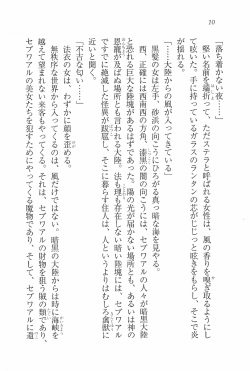 10
「落ち着かない夜……」
堅い名前を端折って、ただステラとだけ呼ばれる女性は、風の香りを嗅ぎ取るようにし
て呟いた。手に持っているガラスのランタンの芯がじじっと呟きをもらし、そこで炎
が揺れる。
「……大陸からの風が入ってきている」
黒髪の女は左手、砂浜の向こうにひろがる真っ暗な海を見やる。
西、正確には西南西の方角、漆黒の闇の向こうには、セプワアルの人々が暗黒大陸
と恐れる巨大な陸塊があるはずであった。陽の光が届かない場所とも、あるいは神の
恩寵が及ばぬ場所とも言われる大陸。法も理も存在しない暗い陸塊には、セプワアル
ではすでに絶滅した怪異が跋扈し、そこに暮らす住人は、人というよりはむしろ禽獣に
近いと聞く。
法衣の女は、わずかに顔を歪める。
無秩序な世界から入ってくるのは、風だけではない。暗黒の大陸からは時に海峡を
越えて望まれない来客もやってくる。それは、セプワアルの財物を狙う賊の類であり、
セプワアルの美女たちを犯すためにやってくる魔物であり、そして、セプワアルに遣